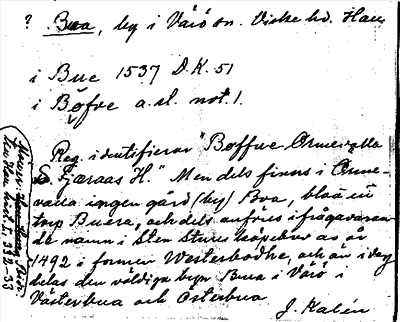 ? Bua, by i Värö sn. Viske hd. Hall
i Bue 1537 D.K. 51
i Böfve a. st. not 1.
Reg. identifierar "Boffue Ormevalla
S. Fjæraas H." Men dels finns i Orme-
valla ingen gård (by) Bova, blott ett
torp Buera, och dels anföres ifrågavaran-
de namn i Sten Stures köpebrev av år
1492 i formen Westerbodhe, och än i dag
delas den väldiga byn Bua i Värö i
Västerbua och Österbua
J. Kalén